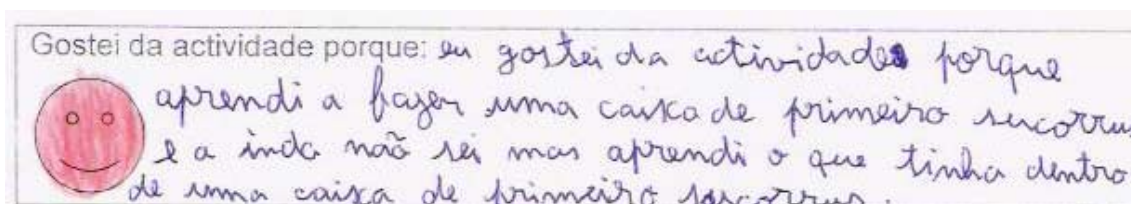 Gostei da actividade porque: eu gostei da actividade porque
aprendi a fazer uma caixa de primeiro sucorrus
e a inda não sei mas aprendi o que tinha dentro
de uma caixa de primeiro sucorrus.